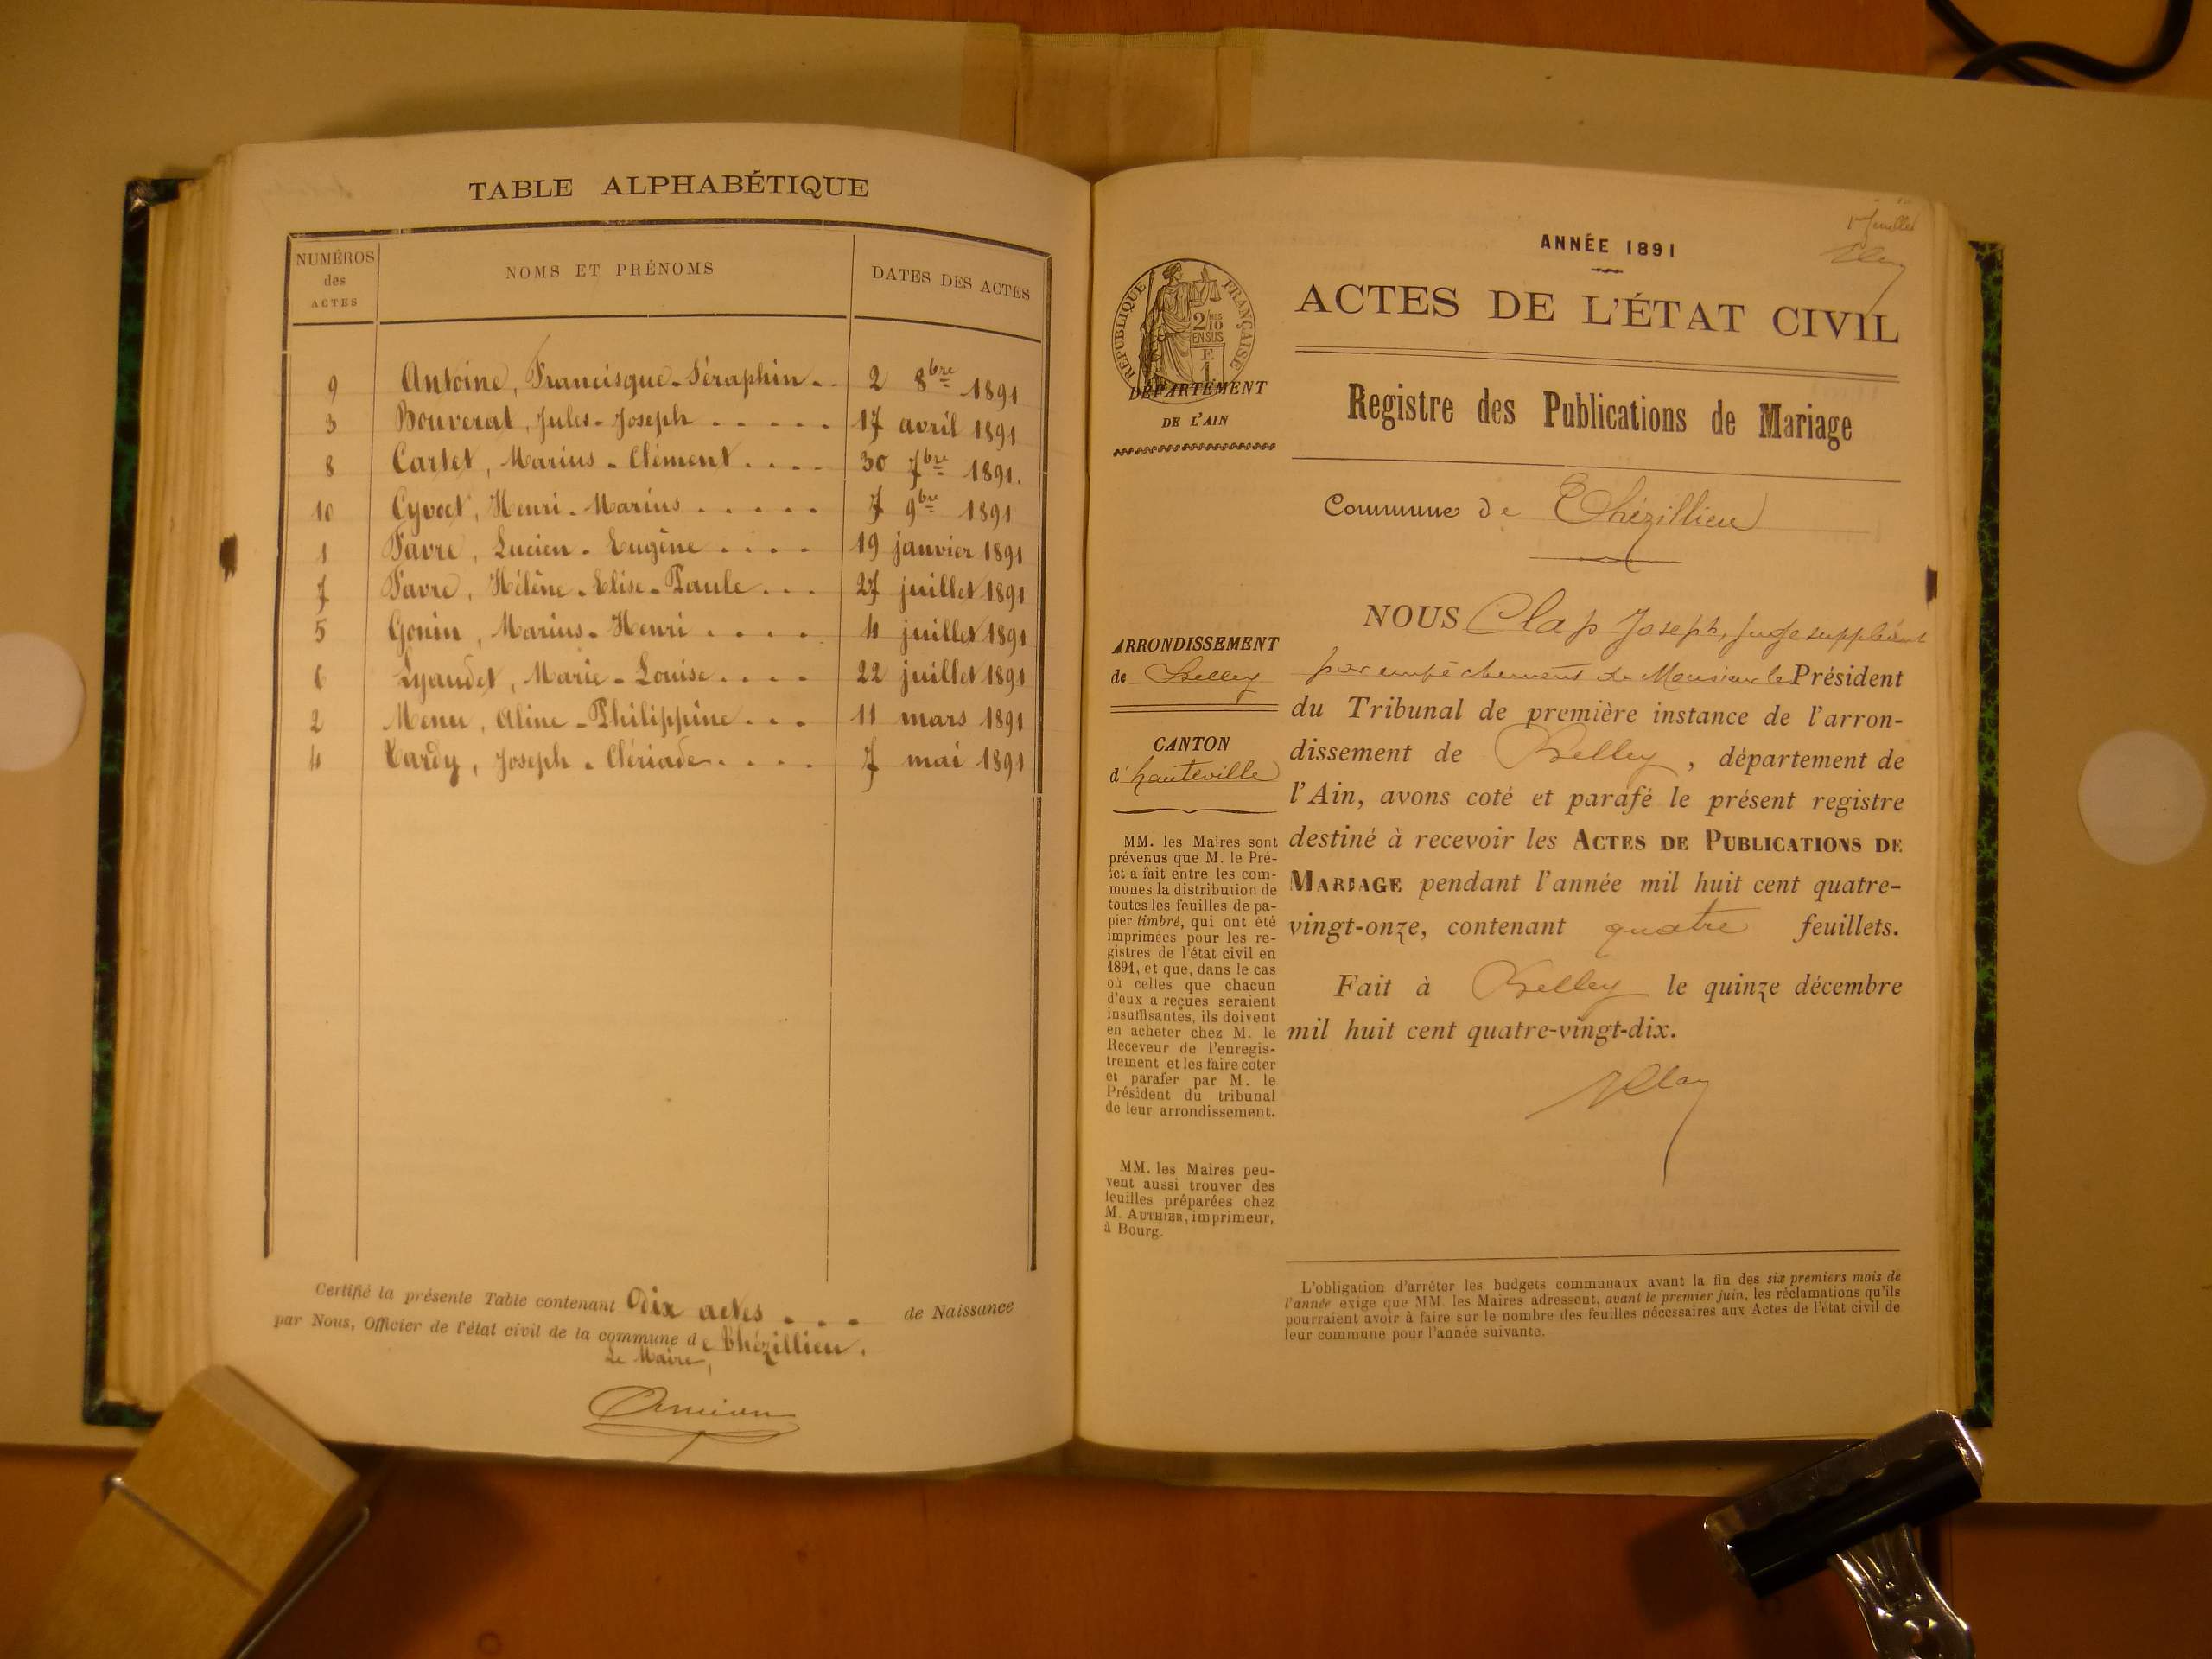 TABLE ALPHABÉTIQUE
NUMÉROS des ACTES NOMS ET PRÉNOMS DATES DES ACTES
9 Antoine, Francisque-Séraphin.. 2 8bre 1891
3 Bouverat, Jules-Joseph ..... 17 avril 1891
8 Cartet, Marius-Clément .... 30 7bre 1891.
10 Cyvoct, Henri-Marius ..... 7 9bre 1891
1 Favre, Lucien-Eugène .... 19 janvier 1891
7 Favre, Hélène-Elise-Paule... 27 juillet 1891
5 Gonin, Marius-Henri .... 4 juillet 1891
6 Lyaudet, Marie-Louise .... 22 juillet 1891
2 Menu, Aline-Philippine ... 11 mars 1891
4 Tardy, Joseph-Clériade .... 7 mai 1891
Certifié la présente Table contenant Dix actes ... de Naissance
par Nous, Officier de l'état civil de la commune de Thézillieu.
Le Maire,
1er feuillet
ANNÉE 1891
ACTES DE L'ÉTAT CIVIL
RÉPUBLIQUE FRANÇAISE
2/10 EN SUS
F. 1
DÉPARTEMENT
DE L'AIN
Registre des Publications de Mariage
Commune de Thézillieu
ARRONDISSEMENT
de Belley
CANTON
d'hauteville
MM. les Maires sont
prévenus que M. le Pré-
fet a fait entre les com-
munes la distribution de
toutes les feuilles de pa-
pier timbré, qui ont été
imprimées pour les re-
gistres de l'état civil en
1891, et que, dans le cas
où celles que chacun
d'eux a reçues seraient
insuffisantes, ils doivent
en acheter chez M. le
Receveur de l'enregis-
trement et les faire coter
et parafer par M. le
Président du tribunal
de leur arrondissement.
MM. les Maires peu-
vent aussi trouver des
feuilles préparées chez
M. AUTHIER, imprimeur,
à Bourg.
NOUS Clap Joseph, Juge suppléant
par empêchement de Monsieur le Président
du Tribunal de première instance de l'arron-
dissement de Belley, département de
l'Ain, avons coté et parafé le présent registre
destiné à recevoir les ACTES DE PUBLICATIONS DE
MARIAGE pendant l'année mil huit cent quatre-
vingt-onze, contenant quatre feuillets.
Fait à Belley le quinze décembre
mil huit cent quatre-vingt-dix.
L'obligation d'arrêter les budgets communaux avant la fin des six premiers mois de
l'année exige que MM. les Maires adressent, avant le premier juin, les réclamations qu'ils
pourraient avoir à faire sur le nombre des feuilles nécessaires aux Actes de l'état civil de
leur commune pour l'année suivante.